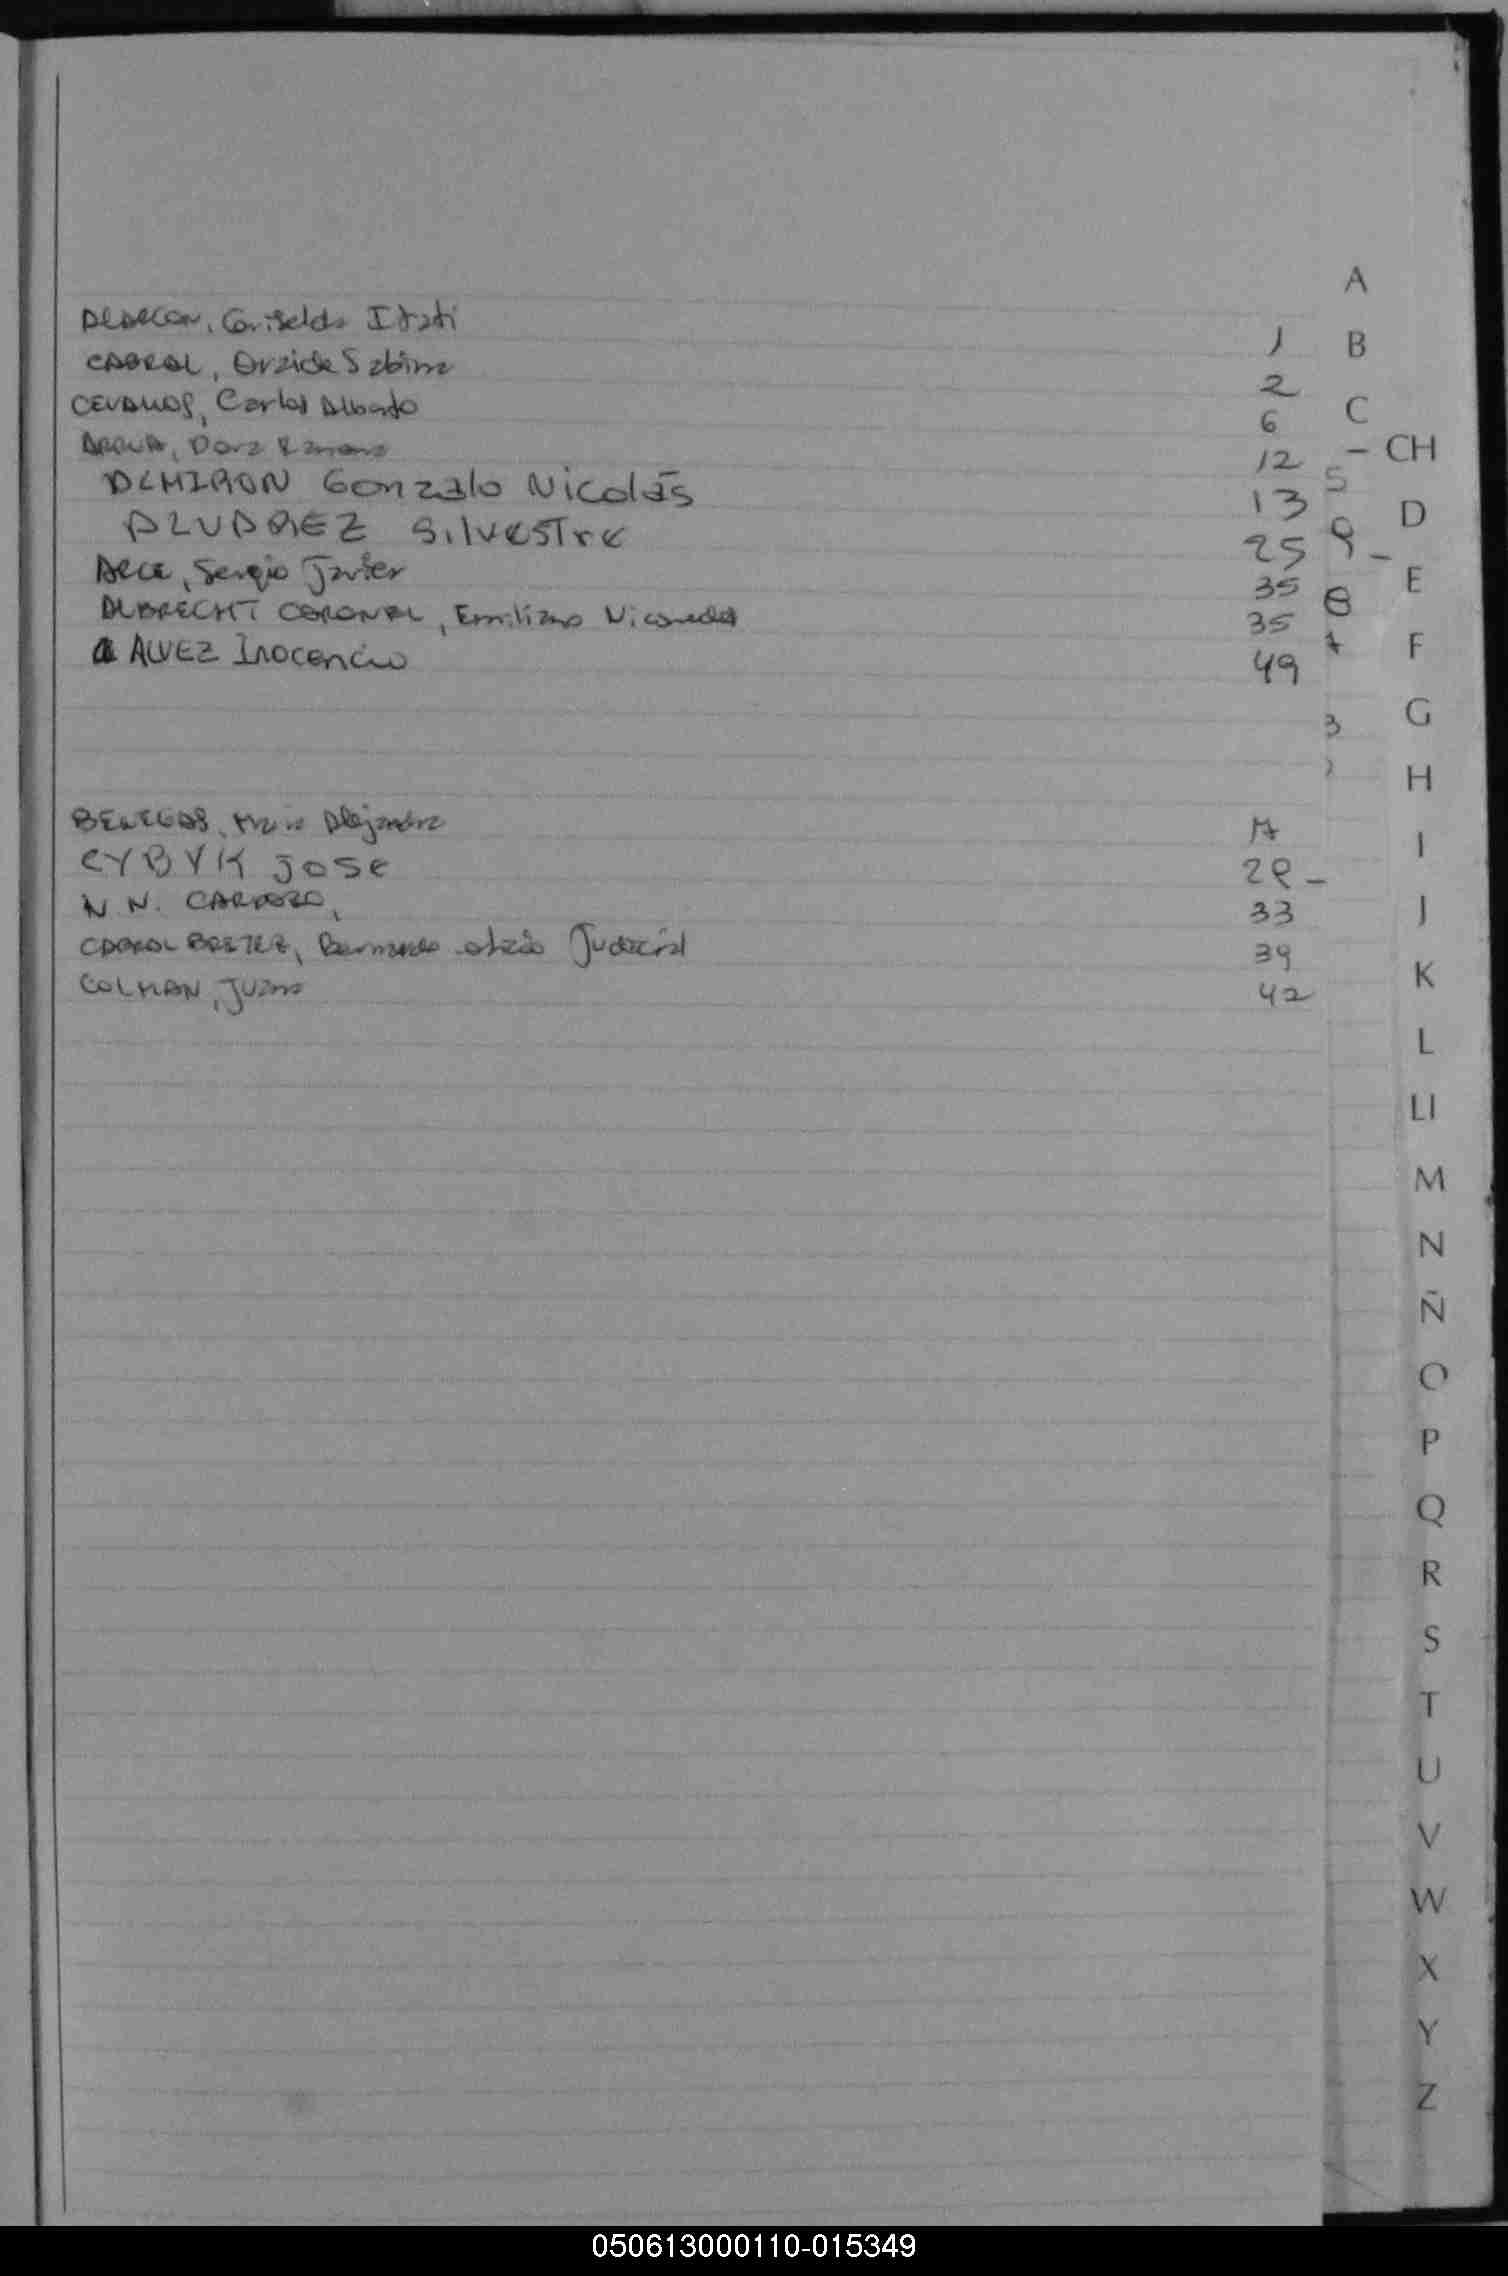 ALARCON, Griselda Itati 1
CABRAL, Sabina 2
CEVALLOS, Carlos Alberto 6
ARRUA, Dora Ramona 12
ALMIRON Gonzalo Nicolás 13
ALVAREZ Silvestre 25
ARCE, Sergio Javier 35
ALBRECHT CORONEL, Emiliano Nicomedes 35
ALVEZ Inocencio 49
BENEGAS, Maria Alejandra 17
CYBYK Jose 28 -
N.N. CARDOZO, 33
CABRAL BRITEZ, Bernardo Judicial 39
COLMAN, Juana 42
A
B
C
CH
D
E
F
G
H
I
J
K
L
Ll
M
N
Ñ
O
P
Q
R
S
T
U
V
W
X
Y
Z
050613000110-015349